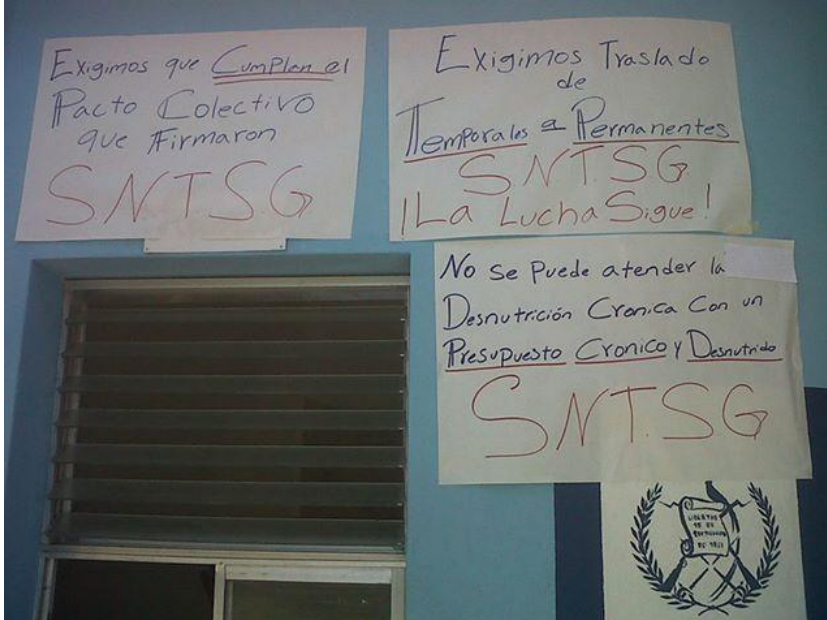 Exigimos que Cumplan el
Pacto Colectivo
que Firmaron
S.N.T.S.G
Exigimos Traslado
de
Temporales a Permanentes
S.N.T.S.G.
¡La Lucha Sigue!
No se Puede atender la
Desnutrición Cronica Con un
Presupuesto Cronico y Desnutrido
S.N.T.S.G
LIBERTAD
15 DE
SEPTIEMBRE
DE 1821